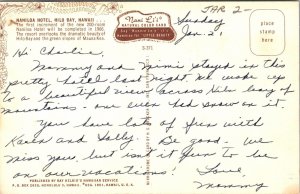 NANILOA HOTEL, HILO BAY, HAWAII
The first increment of the new 200-room
Naniloa Hotel will be completed in 1966.
The resort overlooks the serene beauty of
Hilo Bay and the green slopes of Mauna Kea.
Nani Li'i
NATURAL COLOR CARD
S-371
JAR 2-
Sunday
Jan. 2
place
stamp
here
Hi Charlie,
Mammy and Mimi stayed in this
pretty hotel last night. We woke up
to a beautiful view across Hilo bay of
mountains - one even had snow on it.
You have lots of fun with
Karen and Sally. Be good - we
miss you, but isn't it fun to be
on our vacations! Love,
Mommy
PUBLISHED BY RAY HELBIG'S HAWAIIAN SERVICE
P. O. BOX 2835, HONOLULU 3, HAWAII
HAWAII, U.S.A.